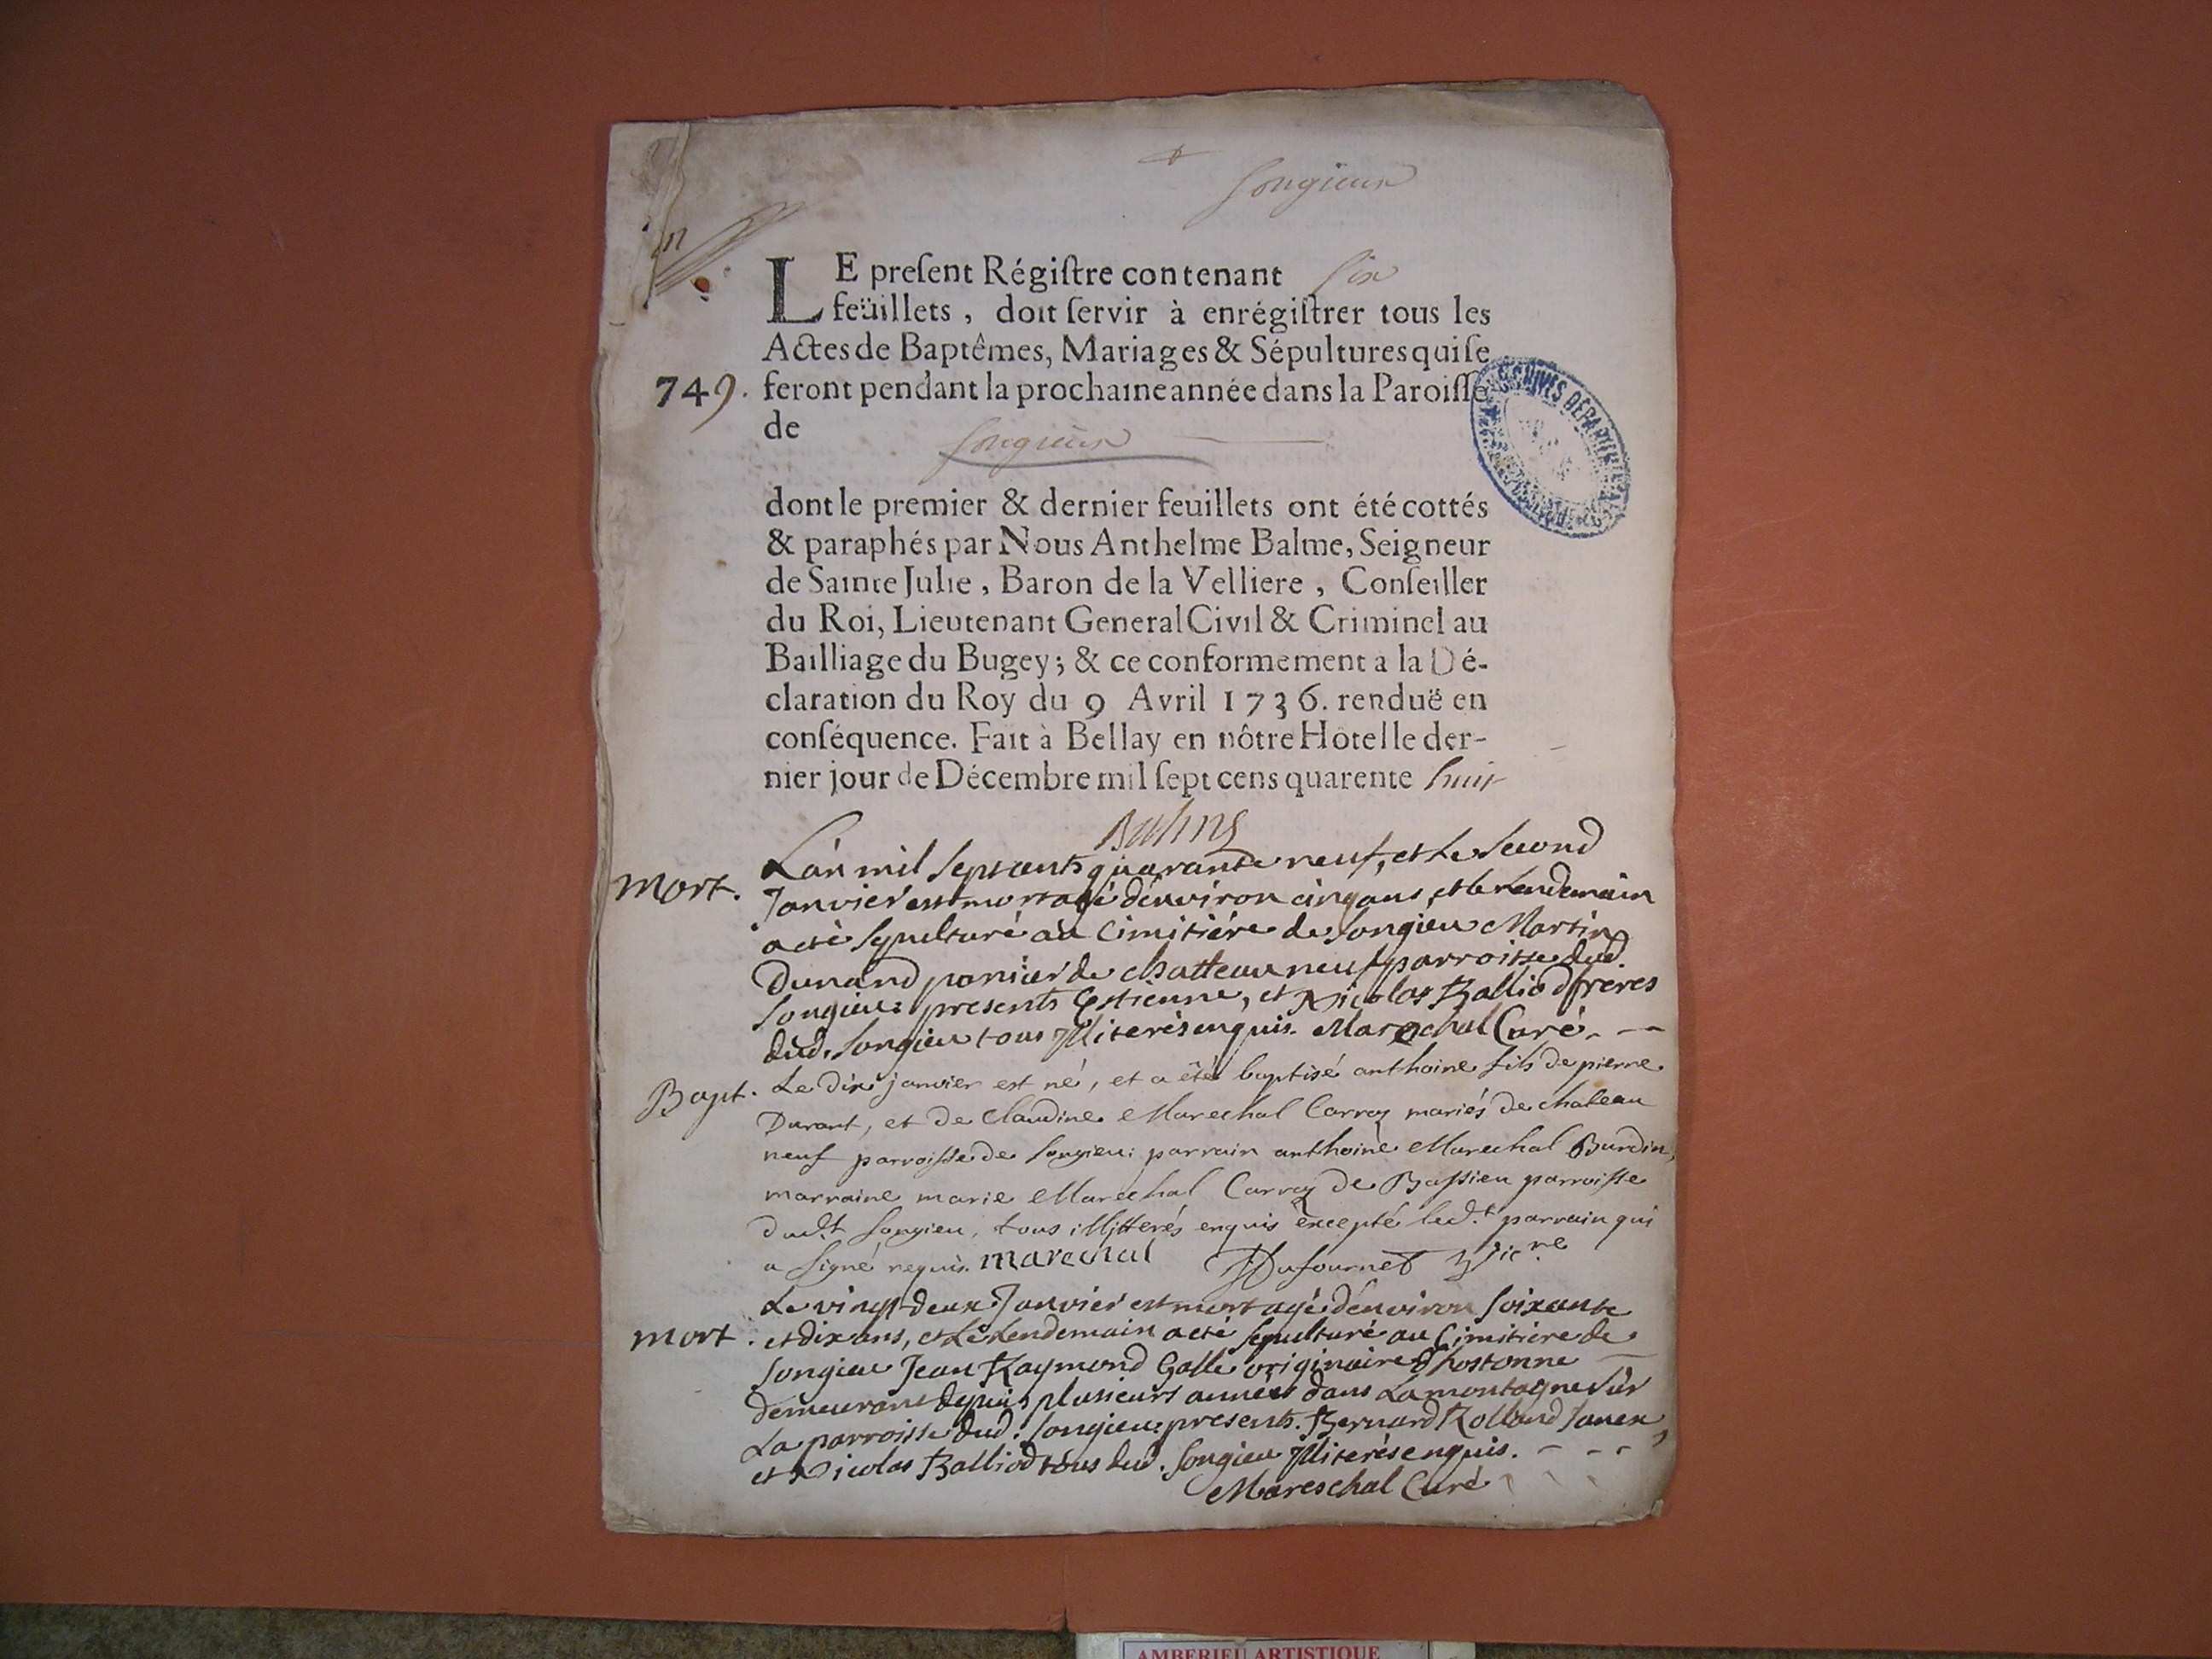 Songieux
LE preſent Régiſtre contenant six
feüillets, doit ſervir à enrégiſtrer tous les
Actes de Baptêmes, Mariages & Sépultures qui ſe
749. feront pendant la prochaine année dans la Paroiſſe
de Songieux
dont le premier & dernier feuillets ont été cottés
& paraphés par Nous Anthelme Balme, Seigneur
de Sainte Julie, Baron de la Velliere, Conſeiller
du Roi, Lieutenant General Civil & Criminel au
Bailliage du Bugey; & ce conformement a la Dé-
claration du Roy du 9 Avril 1736. renduë en
conſéquence. Fait à Bellay en nôtre Hôtel le der-
nier jour de Décembre mil ſept cens quarente huit
Balme
L'an mil sept cents quarante neuf, et le second
mort. Janvier est mort agé d'environ cinq ans, et le lendemain
a eté sepulturé au Cimitiére de Songieu Martin
Dunand panier de chatteau neuf parroisse dud.
Songieu: presents Estienne, et Nicolas Balliod freres
dud. Songieu tous Illiterés enquis. Mareschal Curé.
Bapt. Le dix janvier est né, et a été baptisé anthoine fils de pierre
Durant, et de Claudine Marechal Carroz mariés de chateau
neuf parroisse de Songieu: parrain anthoine Marechal Burdin,
marraine marie Marechal Carroz de Bassieu parroisse
dud.t Songieu, tous illitterés enquis excepté led.t parrain qui
a signé requis. marechal Dufournet vic.re
Le vingt-deux Janvier est mort agé d'environ soixante
mort. et dix ans, et le lendemain a eté sepulturé au Cimitiere de
Songieu Jean Raymond Galle originaire d'hostonne
demeurant depuis plusieurs années dans la montagne sur
la parroisse dud. Songieu: presents. Bernard Rolland Janex,
et Nicolas Balliod tous dud. Songieu Illiterés enquis.
Mareschal Curé
ARCHIVES DÉPARTEMENTALES
AMBERIEU ARTISTIQUE